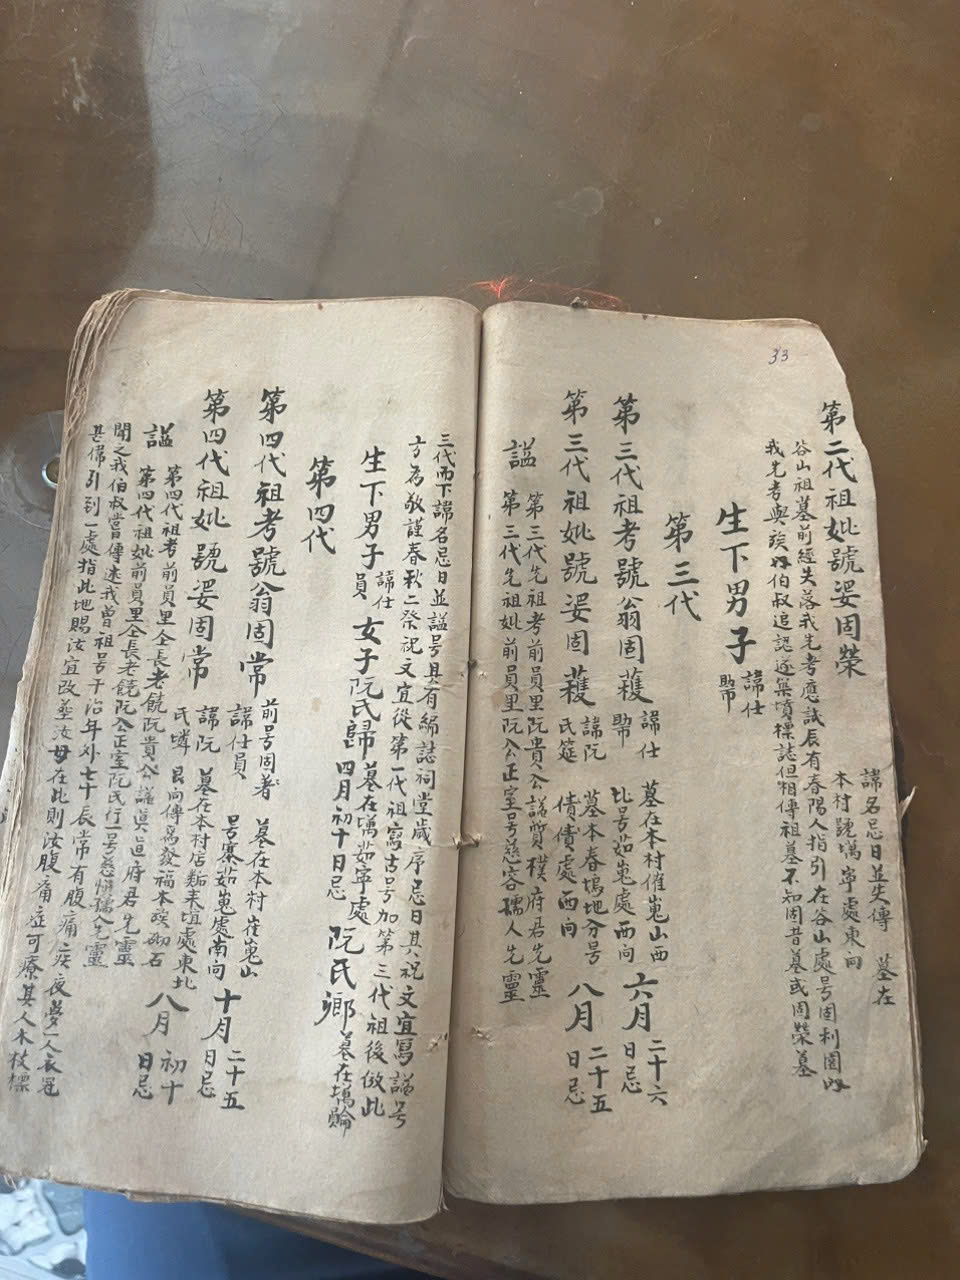 33
第二代祖妣號婆固榮
諱名忌日並失傳 墓在
本村號塸寧處東向
谷山祖墓前經失落我先考應試辰有春陽人指引在谷山處号固利園
我先考與族伯叔追認逐築墳標誌但相傳祖墓不知固昔墓或固榮墓
生下男子 諱仕
第三代
第三代祖考號翁固蒦 諱仕
墓在本村催嵬山西
比号茹嵬處西向
六月 二十六
日忌
第三代祖妣號婆固蒦 諱阮
氏筵
墓本春塢地分号
債債處西向
八月 二十五
日忌
謚 第三代先祖考前員里阮貴公謚質樸府君先靈
第三代先祖妣前員里阮公正室号慈容孺人先靈
三代而下諱名忌日並謚号具有編誌祠堂歲序忌日其祝文宜寫謚号
方為敬謹春秋二祭祝文宜從第一代祖寫古号加第三代祖後倣此
生下男子 諱仕
員
女子阮氏歸 墓在塸茹寧處
四月初十日忌
阮氏鄉 墓在塸
第四代
第四代祖考號翁固常 前号固著
諱仕員
墓在本村崔嵬山
号寨茹嵬處南向
十月 二十五
日忌
第四代祖妣號婆固常 諱阮
氏
墓在本村店耒垣處東北
艮向傳為發福本族砌石
八月 初十
日忌
謚 第四代祖考前員里全長老饒阮貴公謚真逌府君先靈
第四代祖妣前員里全長老饒阮公正室阮氏行一号慈慎孺人先靈
聞之我伯叔嘗傳述我曾祖号干治年外七十辰常有腹痛疾夜夢一人衣冠
甚偉引到一處指此地賜汝宜改塟汝母在此則汝腹痛症可療其人木杖標